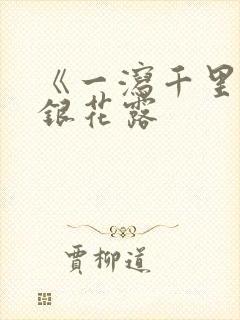 《一瀉千里
銀花露
賈柳道